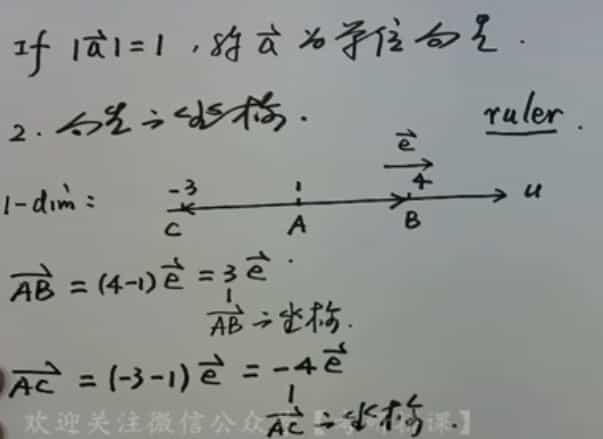 If |a⃗| = 1 , 称 a⃗ 为单位向量 .
2 . 向量之坐标 .
ruler .
e⃗
-3 1 4
1-dim : u
C A B
AB⃗ = (4-1) e⃗ = 3 e⃗ .
AB⃗ 之坐标 .
AC⃗ = (-3-1) e⃗ = -4 e⃗
AC⃗ 之坐标 .
欢迎关注微信公众
课】